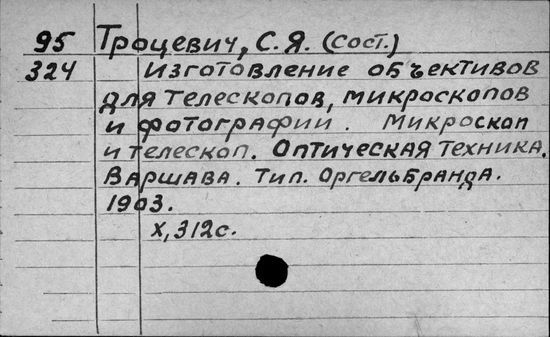 95 Троцевич, С.Я. (сост.)
324 Изготовление объективов
для телескопов, микроскопов
и фотографии. Микроскоп
и телескоп. Оптическая техника.
Варшава. Тип. Оргельбранда.
1903.
X, 312с.